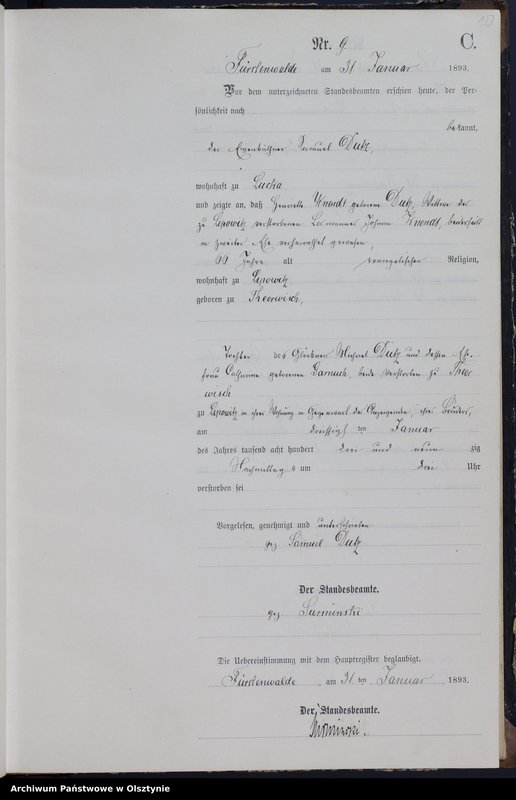 10
Nr. 9 C.
Fürstenwalde am 31 Januar 1893.
Vor dem unterzeichneten Standesbeamten erschien heute, der Per-
sönlichkeit nach
bekannt,
der Eigenkäthner Samuel Dutz,
wohnhaft zu Lucka
und zeigte an, daß Henriette geborene Dutz, Wittwe des
zu Lipowitz verstorbenen Losmannes Johann
in zweiter Ehe verheirathet gewesen,
66 Jahre alt evangelischer Religion,
wohnhaft zu Lipowitz,
geboren zu Theerwisch,
Tochter des Michael Dutz und dessen Ehe-
frau Catharine geborenen beide verstorben zu Theer
wisch
zu Lipowitz in ihrer Wohnung in Gegenwart des Anzeigenden, ihres Bruders,
am dreissigsten Januar
des Jahres tausend acht hundert drei und neun zig
Nachmittags um drei Uhr
verstorben sei
Vorgelesen, genehmigt und unterschrieben
gez Samuel Dutz
Der Standesbeamte.
gez
Die Uebereinstimmung mit dem Hauptregister beglaubigt.
Fürstenwalde am 31 ten Januar 1893.
Der Standesbeamte.
Archiwum Państwowe w Olsztynie